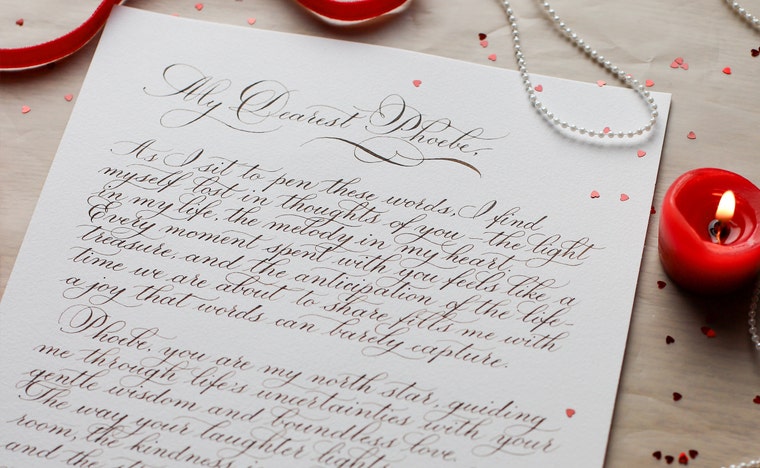 My Dearest Phoebe,
As I sit to pen these words, I find
myself lost in thoughts of you – the light
in my life, the melody in my heart.
Every moment spent with you feels like a
treasure, and the anticipation of the life-
time we are about to share fills me with
a joy that words can barely capture.
Phoebe, you are my north star, guiding
me through life's uncertainties with your
gentle wisdom and boundless love.
The way your laughter lights
room, the kindness
and the